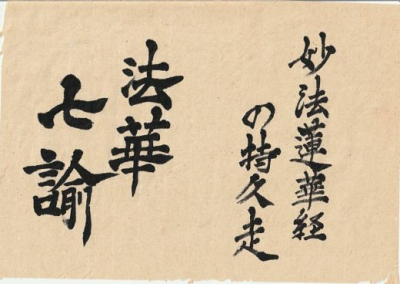 妙法蓮華経
の持久走
法華
七諭